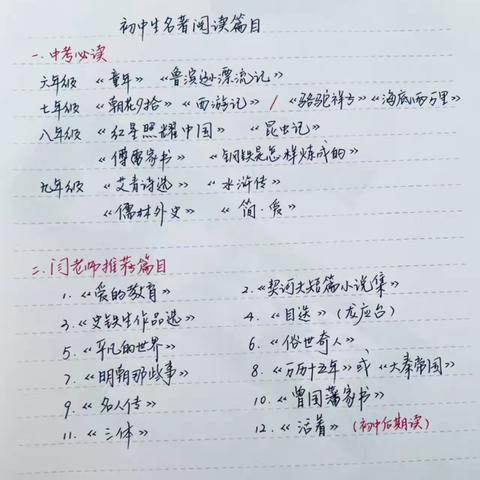 初中生名著阅读篇目
一.中考必读
六年级 《童年》 《鲁滨逊漂流记》
七年级 《朝花夕拾》 《西游记》 / 《骆驼祥子》《海底两万里》
八年级 《红星照耀中国》 《昆虫记》
《傅雷家书》 《钢铁是怎样炼成的》
九年级 《艾青诗选》 《水浒传》
《儒林外史》 《简·爱》
二.闫老师推荐篇目
1.《爱的教育》 2.《契诃夫短篇小说集》
3.《史铁生作品选》 4.《目送》(龙应台)
5.《平凡的世界》 6.《俗世奇人》
7.《明朝那些事》 8.《万历十五年》或《大秦帝国》
9.《名人传》 10.《曾国藩家书》
11.《三体》 12.《活着》(初中后期读)